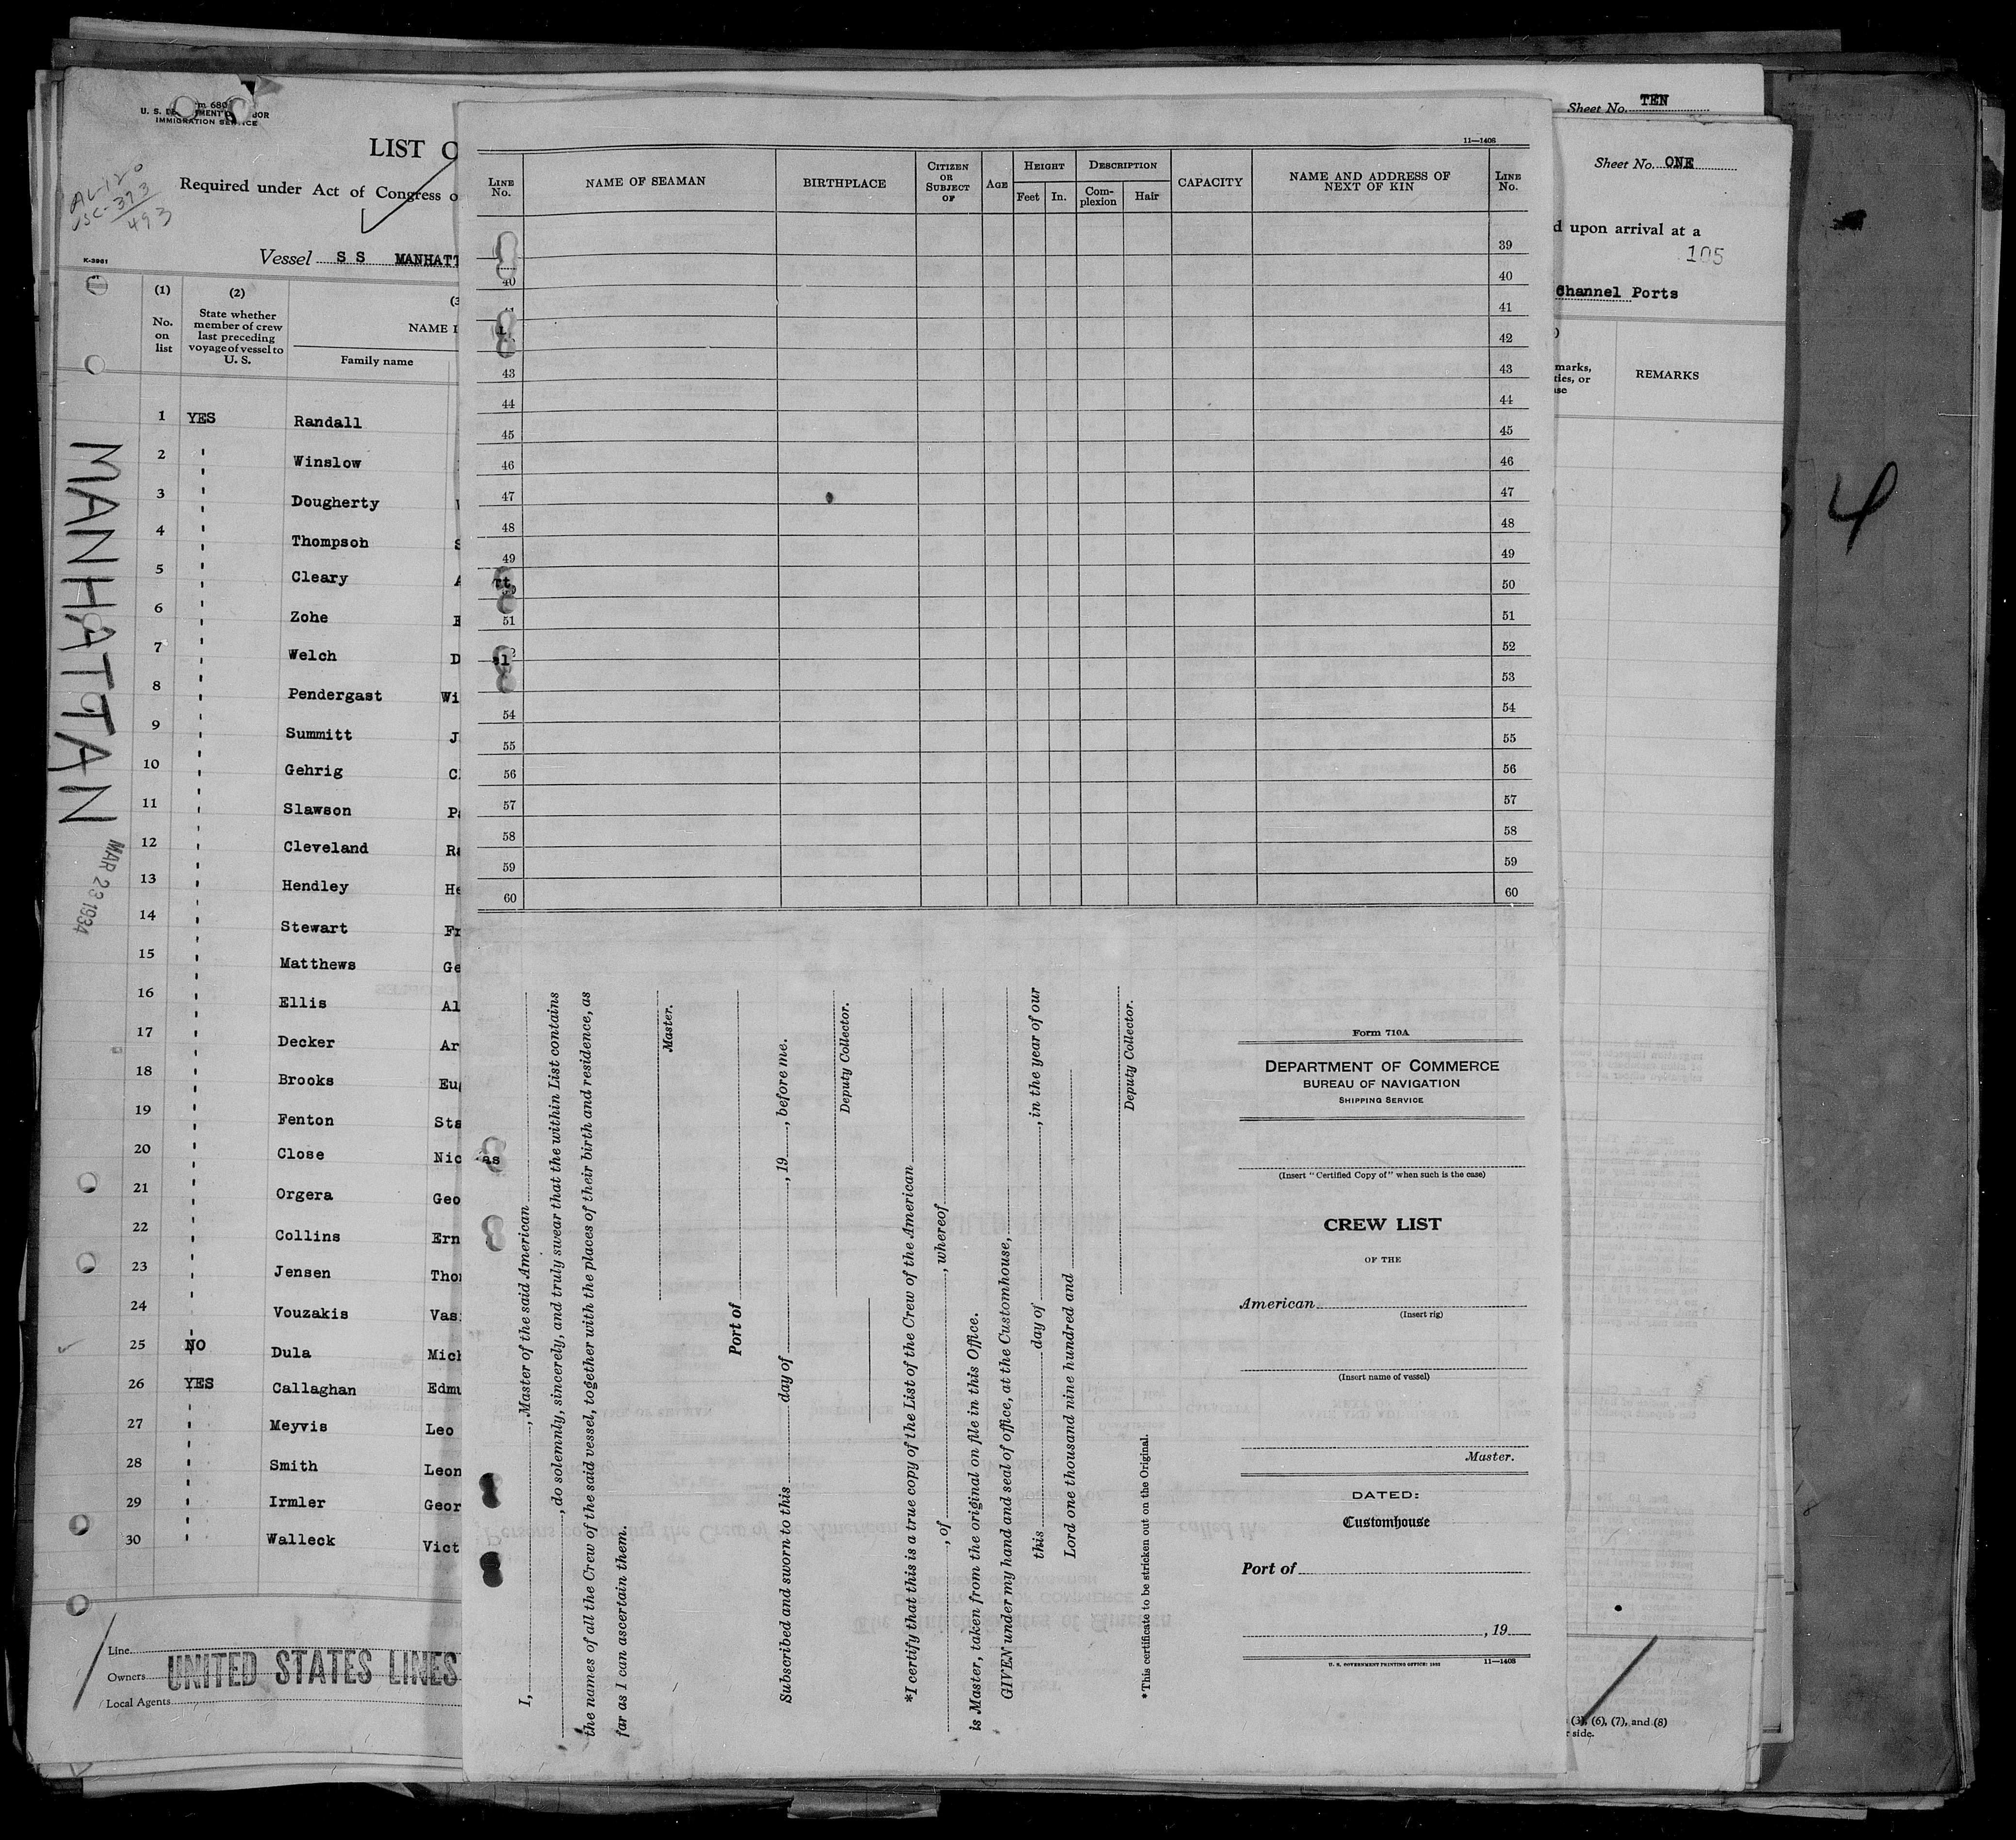 Sheet No. TEN
Sheet No. ONE
d upon arrival at a
105
Channel Ports
marks,
ties, or
REMARKS
4
(3), (6), (7), and (8)
side.
U. S. IMMIGRATION SERVICE
LIST O
Required under Act of Congress o
AL-120
USC-373
493
K-3961
Vessel S S MANHATT
(1) (2)
No. on list
State whether member of crew last preceding voyage of vessel to U. S.
NAME I
Family name
1 YES Randall
2 " Winslow
3 " Dougherty
4 " Thompson S
5 " Cleary A
6 " Zohe
7 " Welch D
8 " Pendergast Wi
9 " Summitt J
10 " Gehrig C
11 " Slawson Pa
12 " Cleveland Ra
13 " Hendley He
14 " Stewart Fr
15 " Matthews Ge
16 " Ellis Al
17 " Decker Ar
18 " Brooks Eug
19 " Fenton Sta
20 " Close Nic as
21 " Orgera Geo
22 " Collins Ern
23 " Jensen Tho
24 " Vouzakis Vas
25 NO Dula Mich
26 YES Callaghan Edmu
27 " Meyvis Leo
28 " Smith Leon
29 " Irmler Geor
30 " Walleck Vict
MANHATTAN
MAR 23 1934
Line
Owners UNITED STATES LINES
Local Agents
11—1408
LINE No.
NAME OF SEAMAN
BIRTHPLACE
CITIZEN OR SUBJECT OF
AGE
HEIGHT
Feet In.
DESCRIPTION
Complexion Hair
CAPACITY
NAME AND ADDRESS OF NEXT OF KIN
LINE No.
39
40 40
41
42
43 43
44 44
45 45
46 46
47 47
48 48
49 49
50
51 51
52
53
54 54
55 55
56 56
57 57
58 58
59 59
60 60
I, , Master of the said American
, do solemnly, sincerely, and truly swear that the within List contains
the names of all the Crew of the said vessel, together with the places of their birth and residence, as
far as I can ascertain them.
Master.
Port of
Subscribed and sworn to this day of , 19 , before me.
Deputy Collector.
*I certify that this is a true copy of the List of the Crew of the American
, of , whereof
is Master, taken from the original on file in this Office.
GIVEN under my hand and seal of office, at the Customhouse,
this day of , in the year of our
Lord one thousand nine hundred and
Deputy Collector.
*This certificate to be stricken out on the Original.
Form 710A
DEPARTMENT OF COMMERCE
BUREAU OF NAVIGATION
SHIPPING SERVICE
(Insert "Certified Copy of" when such is the case)
CREW LIST
OF THE
American
(Insert rig)
(Insert name of vessel)
Master.
DATED:
Customhouse
Port of
, 19
U. S. GOVERNMENT PRINTING OFFICE: 1932 11—1408